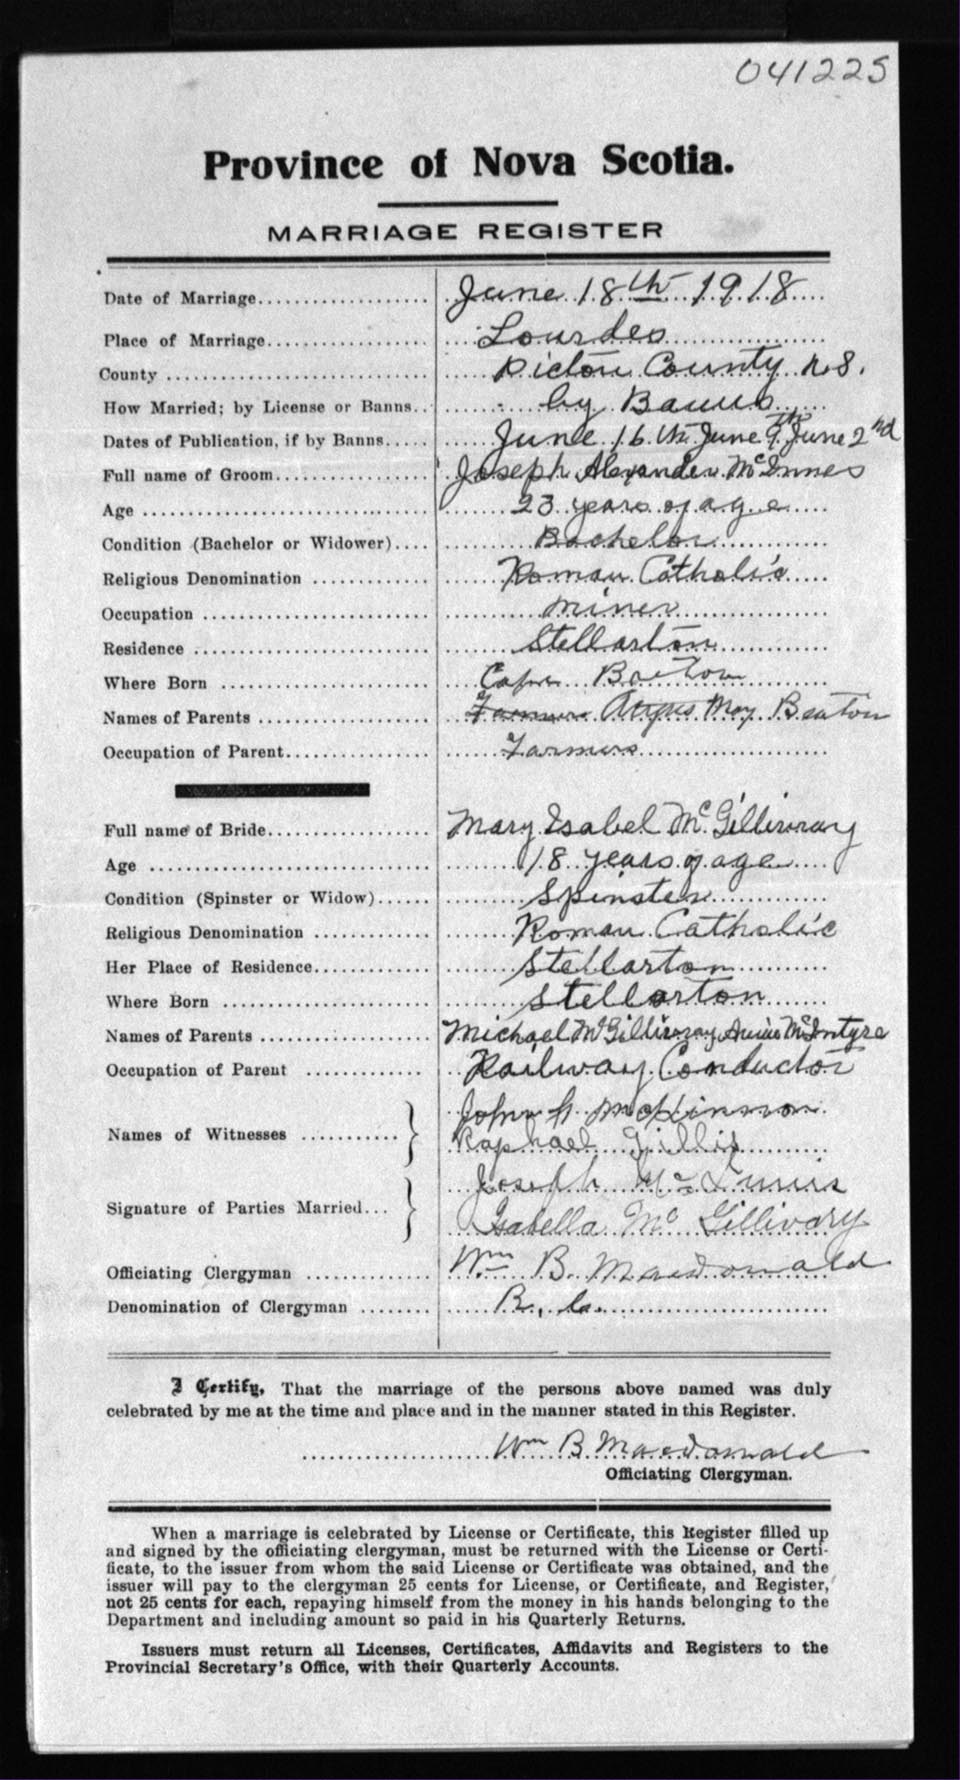 041225
Province of Nova Scotia.
MARRIAGE REGISTER
Date of Marriage.................... June 18th 1918
Place of Marriage................... Lourdes
County ............................. Pictou County N.S.
How Married; by License or Banns.. by Banns
Dates of Publication, if by Banns..... June 16th June 9th June 2nd
Full name of Groom.................. Joseph Alexander McInnes
Age ................................ 23 years of age
Condition (Bachelor or Widower).... Bachelor
Religious Denomination ............. Roman Catholic
Occupation ......................... Miner
Residence .......................... Stellarton
Where Born ......................... Cape Breton
Names of Parents ................... Farmers Angus May Beaton
Occupation of Parent................ Farmers
Full name of Bride.................. Mary Isabel McGillivray
Age ................................ 18 years of age
Condition (Spinster or Widow)...... Spinster
Religious Denomination ............. Roman Catholic
Her Place of Residence.............. Stellarton
Where Born ......................... Stellarton
Names of Parents ................... Michael McGillivray Annie McIntyre
Occupation of Parent ............ Railway Conductor
John McKinnon
Names of Witnesses ...........
Raphael Gillis
Joseph Mc Innis
Signature of Parties Married...
Isabella Mc Gillivary
Officiating Clergyman .............. Wm B. Macdonald
Denomination of Clergyman ........ R. C.
I Certify, That the marriage of the persons above named was duly
celebrated by me at the time and place and in the manner stated in this Register.
Wm B. Macdonald
Officiating Clergyman.
When a marriage is celebrated by License or Certificate, this Register filled up
and signed by the officiating clergyman, must be returned with the License or Certi-
ficate, to the issuer from whom the said License or Certificate was obtained, and the
issuer will pay to the clergyman 25 cents for License, or Certificate, and Register,
not 25 cents for each, repaying himself from the money in his hands belonging to the
Department and including amount so paid in his Quarterly Returns.
Issuers must return all Licenses, Certificates, Affidavits and Registers to the
Provincial Secretary's Office, with their Quarterly Accounts.